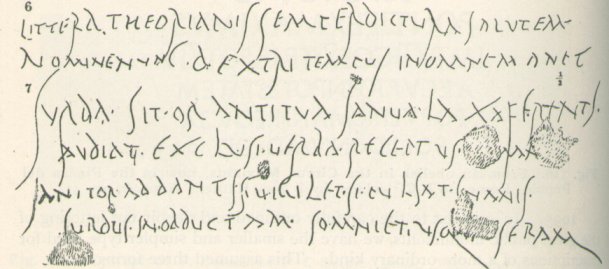 6
LITTERA THEORIANIS SEMPER DICTURA SALUTEM
NOMINE NUNC · DEXTRI TEMPUS IN OMNE MANET
7
1/2
SURDA · SIT · ORANTI TUA IANUA · LAXA FERENTI ·
AUDIAT · EXCLUSI · VERBA · RECEPTUS ·
IANITOR · AD DANTIS VIGILET · SI PULSAT · INANIS ·
SURDUS · IN OBDUCTAM · SOMNIET · USQUE SERAM